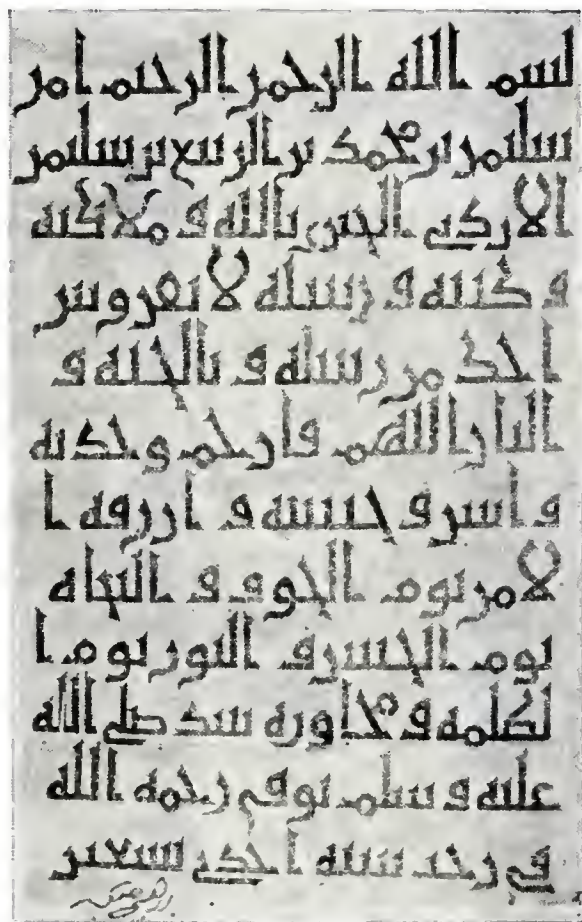 بسم الله الرحمن الرحيم امن
سليمن بن محمد بن الربيع بن سليمن
الازدي بالله و ملائكته
و كتبه و رسله لا نفرق بين
احد من رسله و بالجنه و
النار اللهم فارحم وحدته
و انس وحشته و ارزقه ا
لامن يوم الخوف و النجاه
يوم الحشر و النور يوم ا
لظلمه و مجاوره سيد صلي الله
عليه و سلم توفي رحمه الله
في رجب سنه احدي